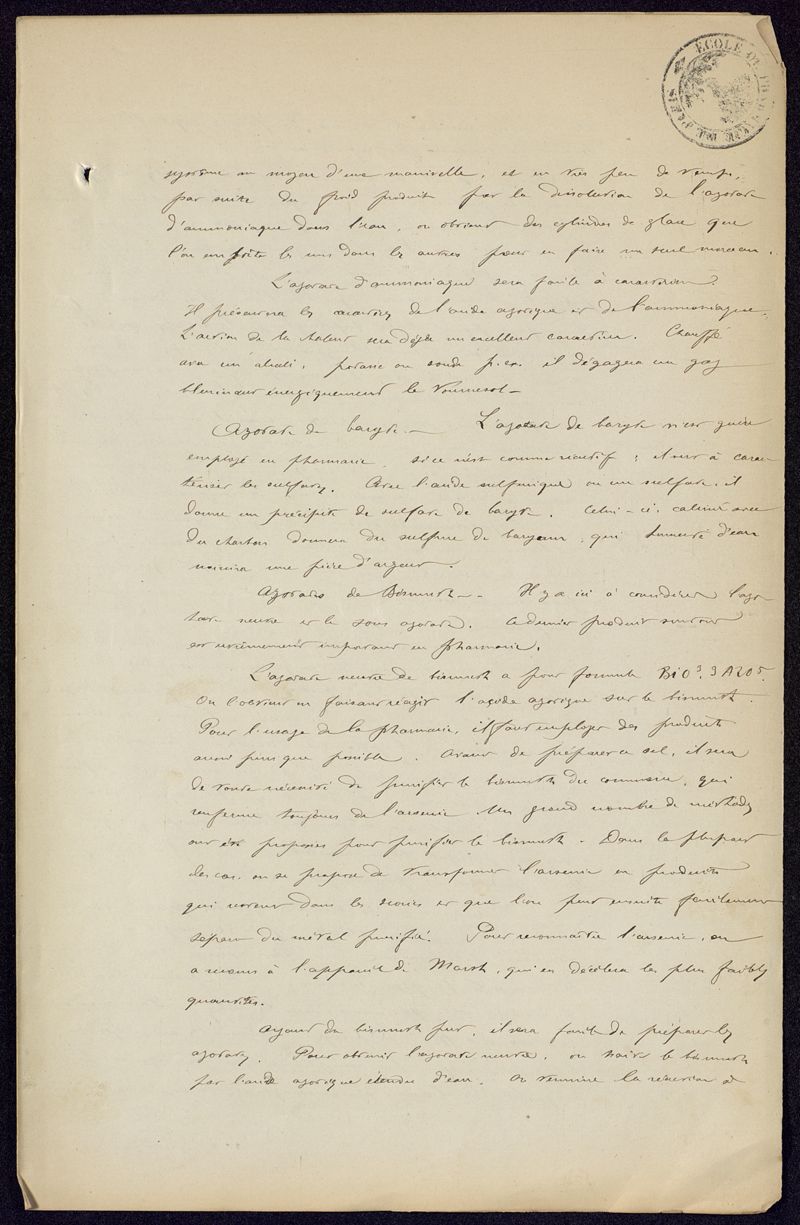 ÉCOLE DE PHARMACIE DE PARIS
système au moyen d'une manivelle, et en très peu de temps,
par suite du froid produit par la dissolution de l'azotate
d'ammoniaque dans l'eau, on obtient des cylindres de glace que
l'on emboîte les uns dans les autres pour en faire un seul morceau.
L'azotate d'ammoniaque sera facile à caractériser.
Il présentera les caractères de l'acide azotique et de l'ammoniaque.
L'action de la chaleur sera déjà un excellent caractère. Chauffé
avec un alcali, potasse ou soude p. ex. il dégagera un gaz
bleuissant énergiquement le tournesol —
Azotate de baryte. — L'azotate de baryte n'est guère
employé en pharmacie, si ce n'est comme réactif ; il sert à carac-
tériser les sulfates. Avec l'acide sulfurique ou un sulfate, il
donne un précipité de sulfate de baryte. Celui-ci, calciné avec
du charbon donnera du sulfure de baryum, qui humecté d'eau
noircira une pièce d'argent.
Azotates de Bismuth — Il y a ici à considérer l'azo-
tate neutre et le sous azotate. Ce dernier produit surtout
est extrêmement important en pharmacie.
L'azotate neutre de bismuth a pour formule BiO3, 3 AzO5.
On l'obtient en faisant réagir l'acide azotique sur le bismuth.
Pour l'usage de la pharmacie, il faut employer des produits
aussi purs que possible. Avant de préparer ce sel, il sera
de toute nécessité de purifier le bismuth du commerce, qui
renferme toujours de l'arsenic. Un grand nombre de méthodes
ont été proposées pour purifier le bismuth. Dans la plupart
des cas, on se propose de transformer l'arsenic en produits
qui restent dans les scories et que l'on peut ensuite facilement
séparer du métal purifié. Pour reconnaître l'arsenic, on
a recours à l'appareil de Marsh, qui en décèlera les plus faibles
quantités.
Ayant du bismuth pur, il sera facile de préparer les
azotates. Pour obtenir l'azotate neutre, on traite le bismuth
par l'acide azotique étendu d'eau. On termine la réaction à